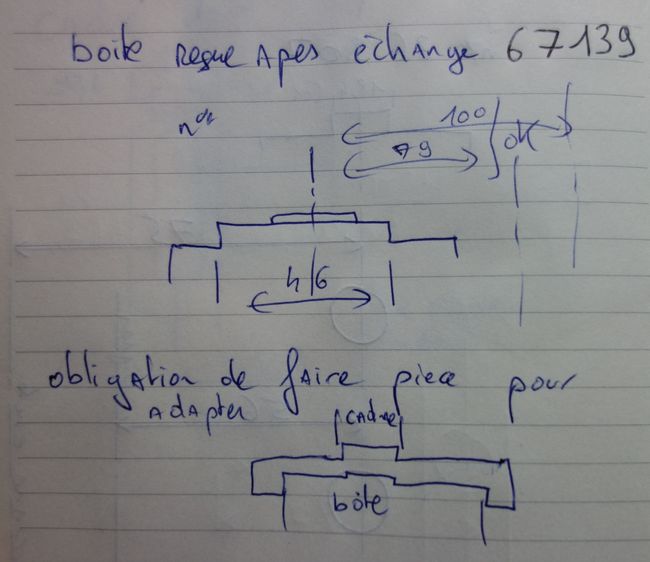 boite reçue Apes échange 67139
100
79
OK
46
obligation de faire piece pour
adapter
cadre
boite